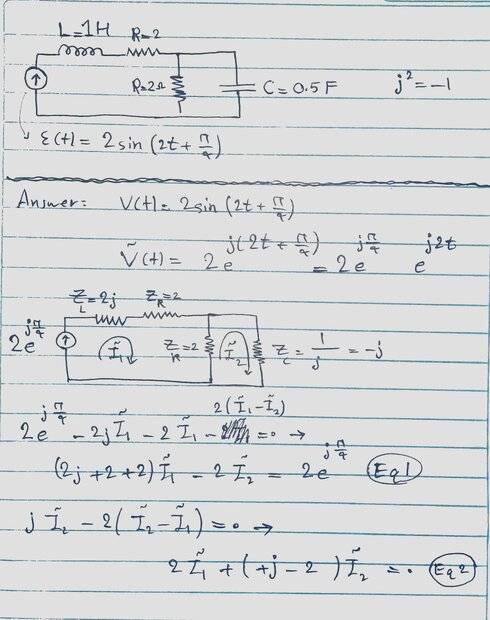 L=1H R=2
R=2Ω C=0.5F j²=-1
ε(t) = 2sin(2t+π/4)
Answer: V(t) = 2sin(2t+π/4)
Ṽ(t) = 2e^{j(2t+π/4)} = 2e^{jπ/4} e^{j2t}
Z_L=2j Z_R=2
2e^{jπ/4} Ĩ₁ Z_R=2 Ĩ₂ Z_C = 1/j = -j
2(Ĩ₁-Ĩ₂)
2e^{jπ/4} - 2jĨ₁ - 2Ĩ₁ - =0 →
(2j+2+2)Ĩ₁ - 2Ĩ₂ = 2e^{jπ/4} Eq1
jĨ₂ - 2(Ĩ₂-Ĩ₁) =0 →
2Ĩ₁ + (+j-2)Ĩ₂ =0 Eq2